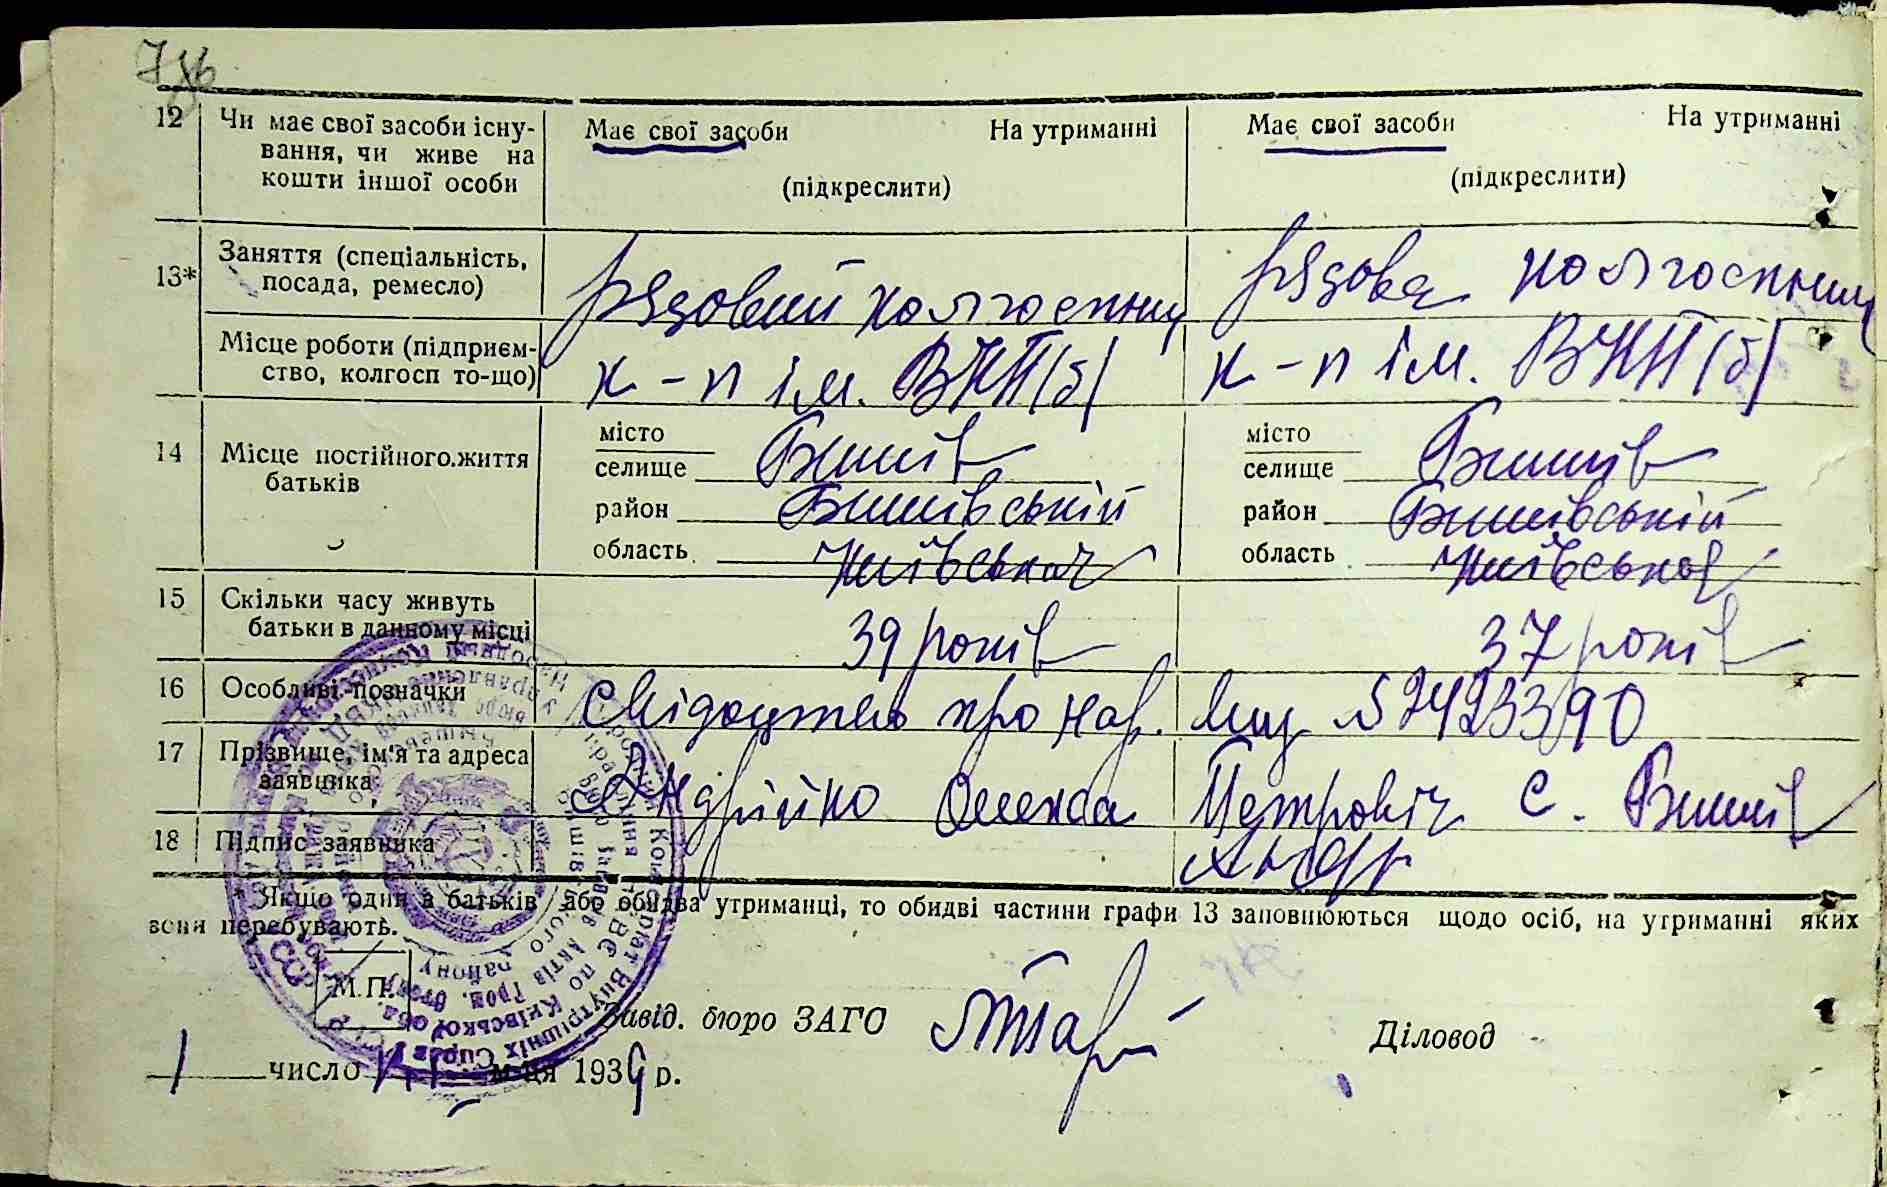 12 Чи має свої засоби існу-
вання, чи живе на
кошти іншої особи
Має свої засоби На утриманні
(підкреслити)
Має свої засоби На утриманні
(підкреслити)
13* Заняття (спеціальність,
посада, ремесло)
рядовий колгоспник
рядова колгоспниц
Місце роботи (підприєм-
ство, колгосп то-що)
к-п ім. ВКП(б)
к-п ім. ВКП(б)
14 Місце постійного життя
батьків
місто
селище Бишів
район Бишівський
область Київська
місто
селище Бишів
район Бишівський
область Київська
15 Скільки часу живуть
батьки в данному місці
39 років
37 років
16 Особливі позначки
свідоцтво про нар.
17 Прізвище, ім'я та адреса
заявника
Андрійко Олекса Петрович с. Бишів
18 Підпис заявника
Якщо один з батьків або обидва утриманці, то обидві частини графи 13 заповнюються щодо осіб, на утриманні яких
вони перебувають.
М.П.
Завід. бюро ЗАГС
Діловод
1 число м-ця 1939 р.